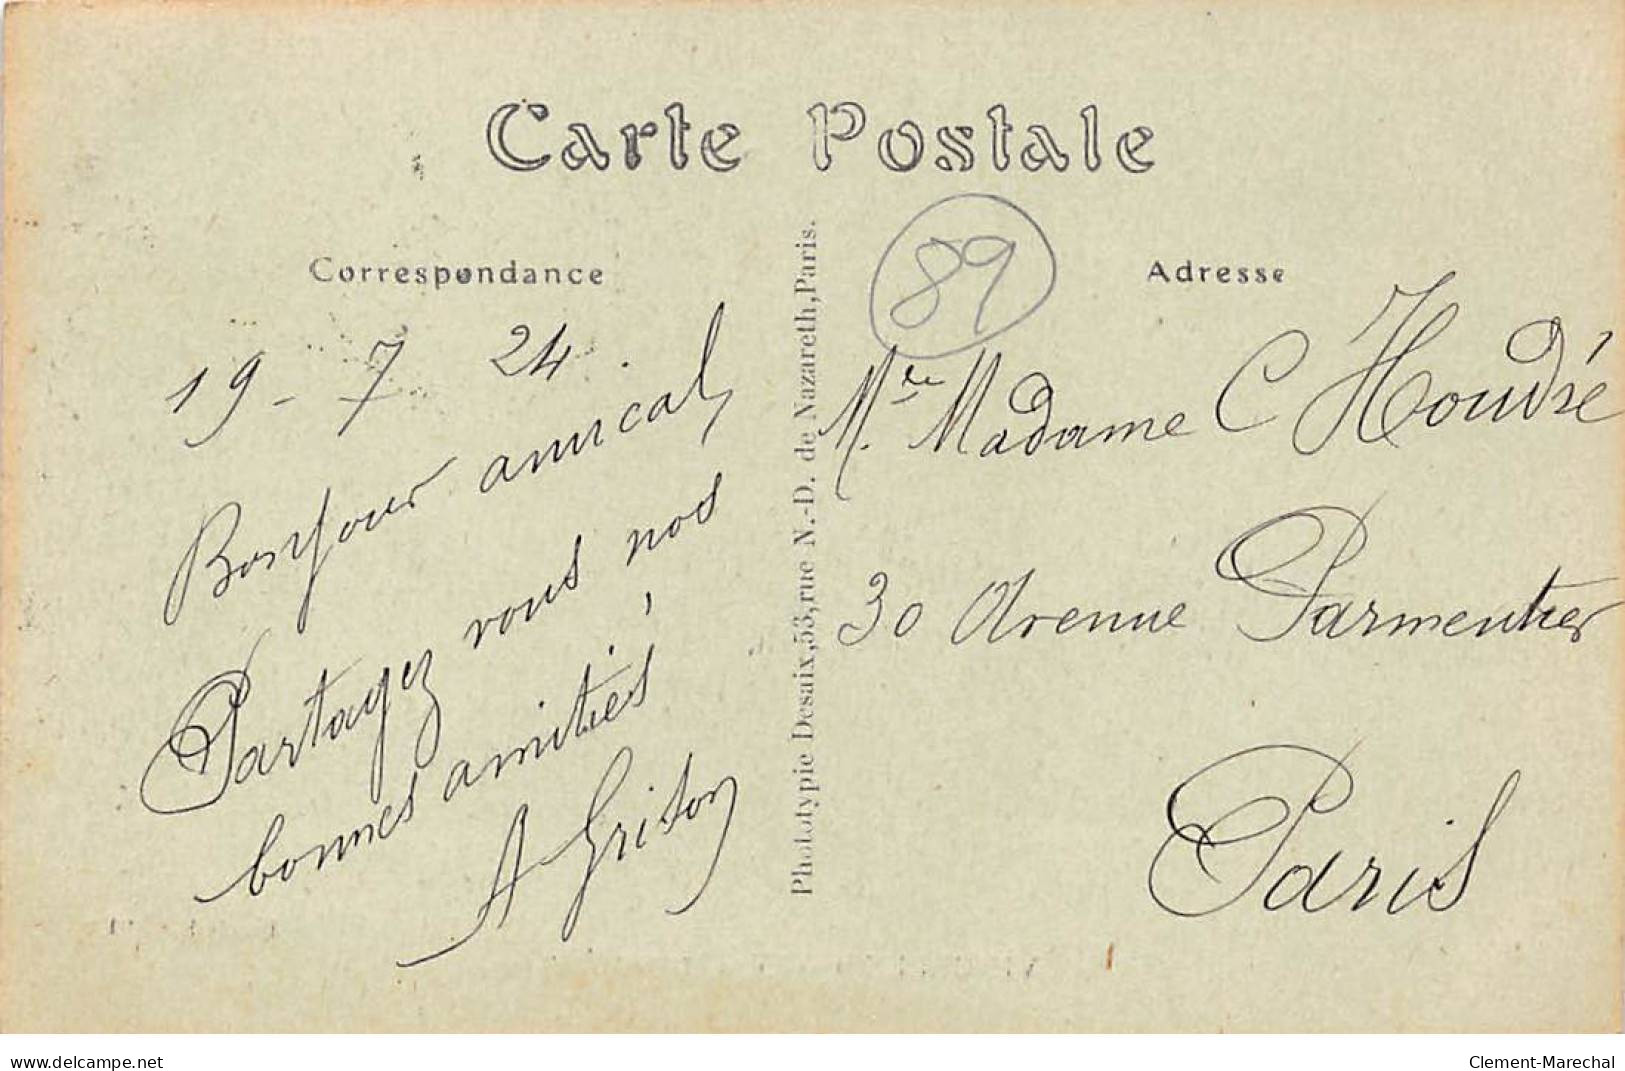 Carte Postale
Correspondance
19 - 7 24.
Bonjour amical,
Partagez vous nos
bonnes amitiés
A Griton
Phototypie Desaix,53,rue N.-D. de Nazareth,Paris.
89
Adresse
M. Madame C Houdré
30 Avenue Parmentier
Paris
www.delcampe.net
Clement-Marechal